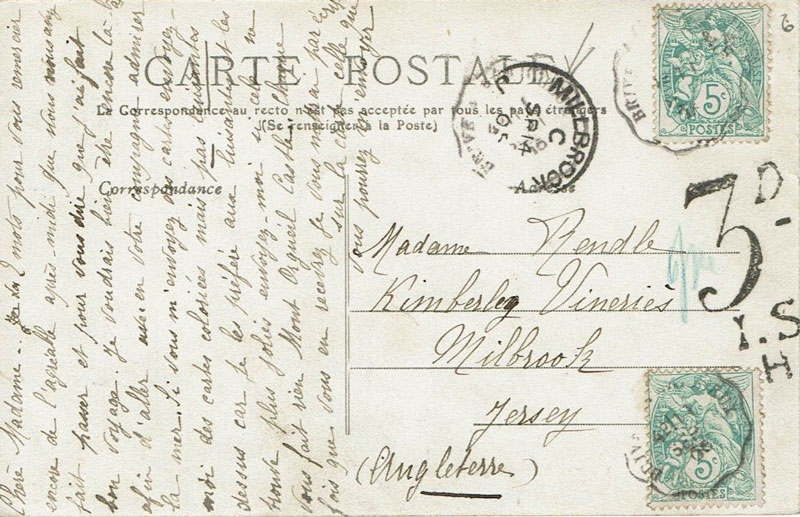 CARTE POSTALE
La Correspondance au recto n'est pas acceptée par tous les pays étrangers
(Se renseigner à la Poste)
Correspondance
Adresse
Chère Madame. 2 mots pour vous remercier
encore de l'agréable après-midi que nous avons
fait passer et pour vous dire que j'ai fait
bon voyage. Je voudrais bien être encore là-bas
afin d'aller en votre compagnie admirer
la mer. Si vous m'envoyez des cartes envoyez-
moi des cartes coloriées mais pas
dessus car je les préfère aux
trouve plus jolies envoyez-moi si cela ne
vous fait rien Mont Orgueil Castle. Chaque
fois que vous en recevrez je vous
sur la celle que
vous pourrez m'envoyer
Madame Rendle
Kimberley Vineries
Milbrook
Jersey
(Angleterre)
MILLBROOK
C
JERSEY
3D.
I.S
H
5c
POSTES
5c
POSTES